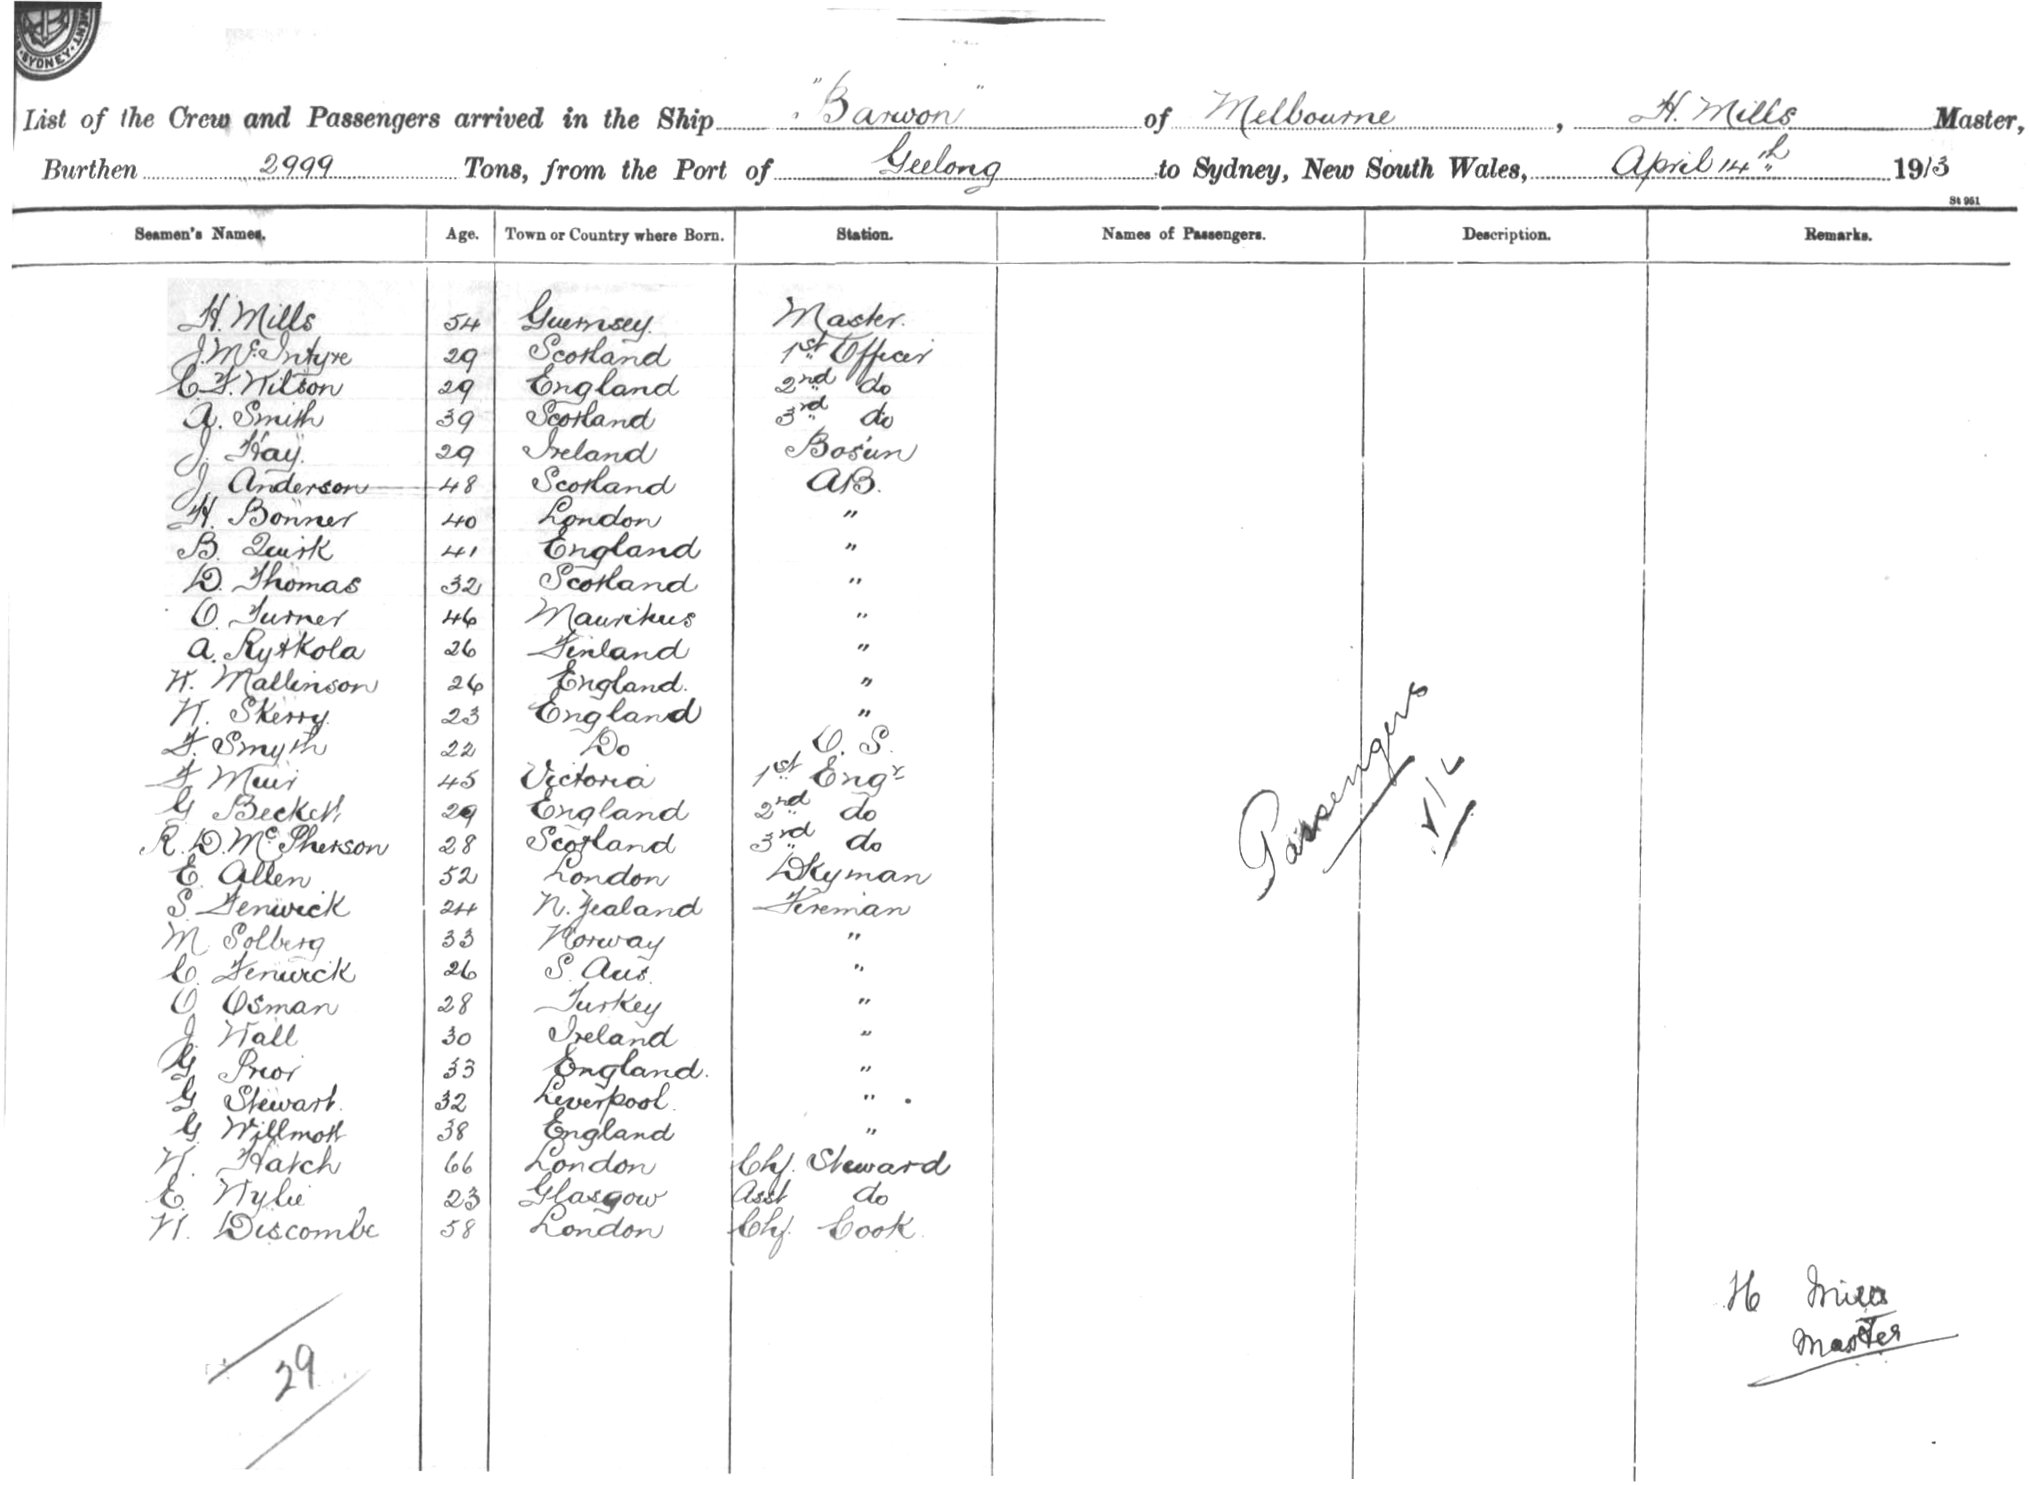 MENT. SYDNEY.
List of the Crew and Passengers arrived in the Ship "Barwon" of Melbourne, H. Mills Master,
Burthen 2999 Tons, from the Port of Geelong to Sydney, New South Wales, April 14th 1913
St 961
Seamen's Names. Age. Town or Country where Born. Station. Names of Passengers. Description. Remarks.
H. Mills 54 Guernsey. Master.
J. McIntyre 29 Scotland 1st Officer
C. F. Wilson 29 England 2nd do
A. Smith 39 Scotland 3rd do
J. Hay. 29 Ireland Bos'un
J. Anderson 48 Scotland AB.
H. Bonner 40 London "
B. Quirk 41 England "
D. Thomas 32 Scotland "
O. Turner 46 Mauritius "
A. Rytkola 26 Finland "
W. Mallinson 26 England. "
W. Skerry. 23 England "
F. Smyth 22 Do O. S.
F. Muir 45 Victoria 1st Engr
G Beckett 29 England 2nd do
R. D. McPherson 28 Scotland 3rd do
E. Allen 52 London Dkyman
S. Fenwick 24 N. Zealand Fireman
M Solberg 33 Norway "
C. Fenwick 26 S. Aus. "
O Osman 28 Turkey "
J. Wall 30 Ireland "
G Prior 33 England. "
G. Stewart. 32 Liverpool. "
G Willmott 38 England "
W. Hatch 66 London Chf. Steward
E. Wylie 23 Glasgow Asst do
W. Discombe 58 London Chf. Cook.
Passengers
H Mills
Master
29